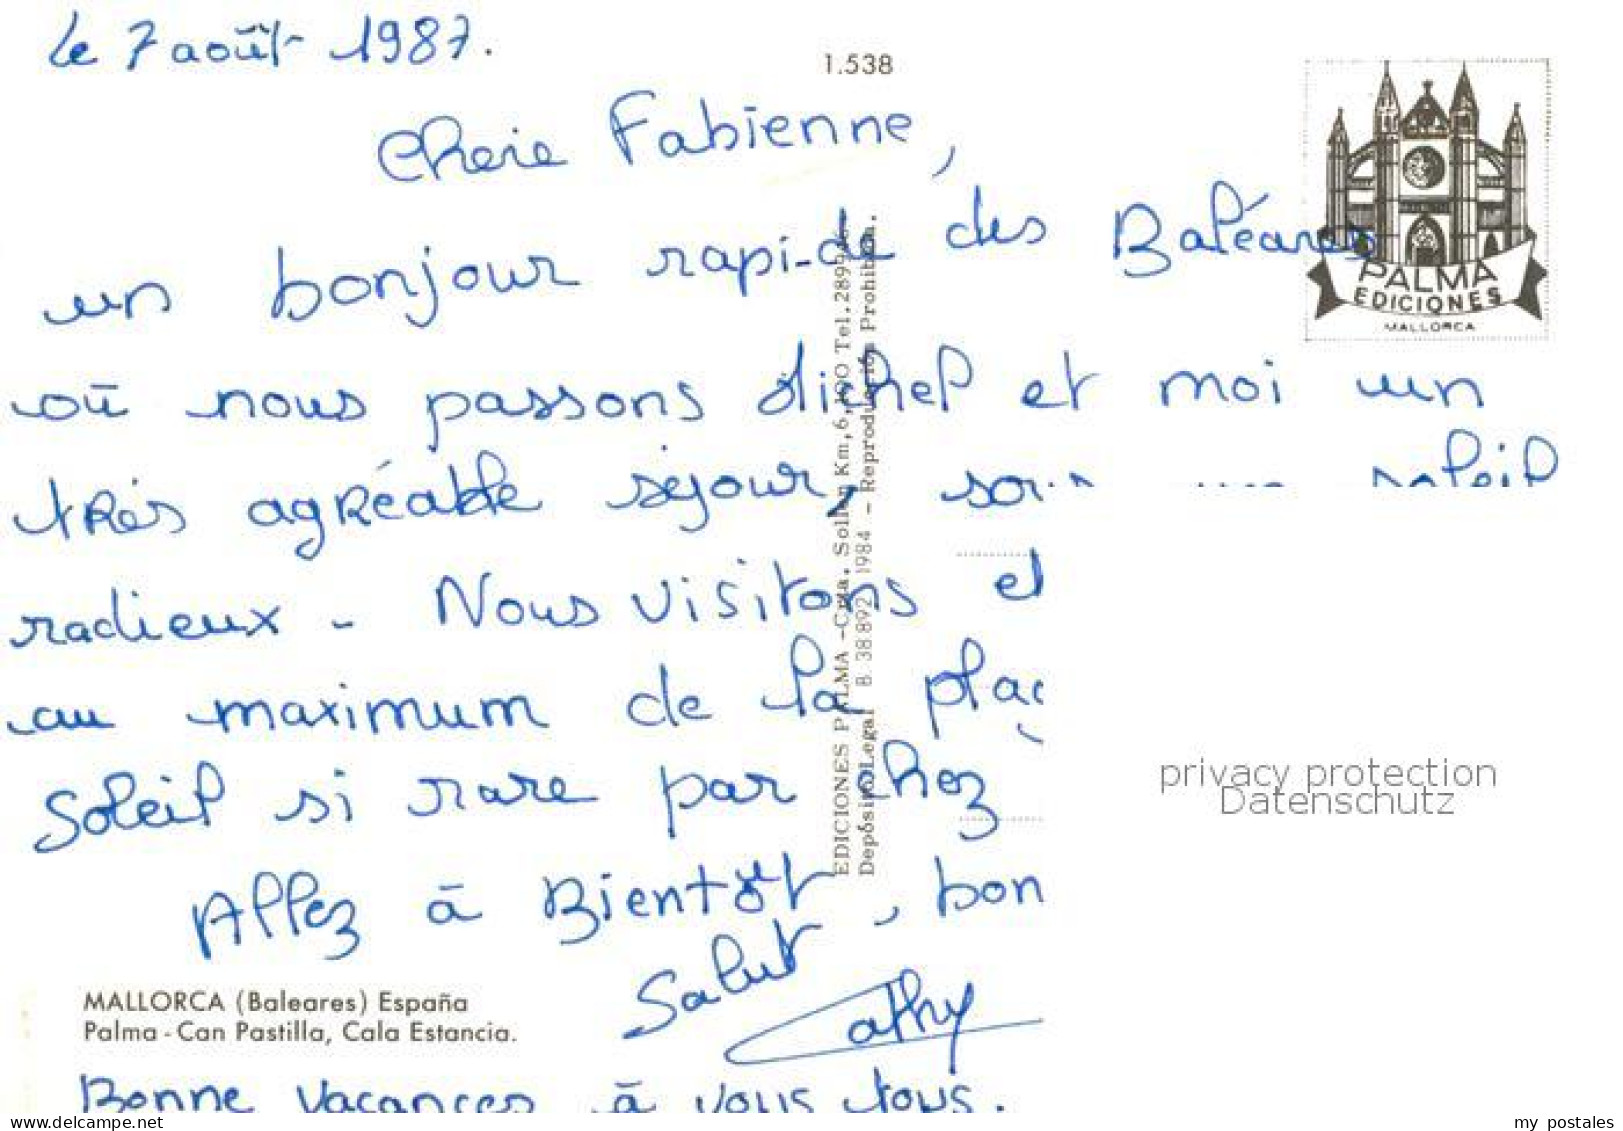 le 7 août 1987.
1.538
Cherie Fabienne,
un bonjour rapide des Baléares
PALMA
EDICIONES
MALLORCA
où nous passons Michel et moi un
très agréable séjour, sous un soleil
radieux - Nous visitons et
au maximum de la plag
soleil si rare par chez
Allez à Bientôt, bon
Salut
Cathy
MALLORCA (Baleares) España
Palma - Can Pastilla, Cala Estancia.
Bonne vacances à vous tous.
EDICIONES PALMA - Crta. Soller, Km, 6, 100 Tel. 2899
Depósito Legal B. 38 892 1984 - Reproducción Prohibida.
privacy protection
Datenschutz
www.delcampe.net
my_postales